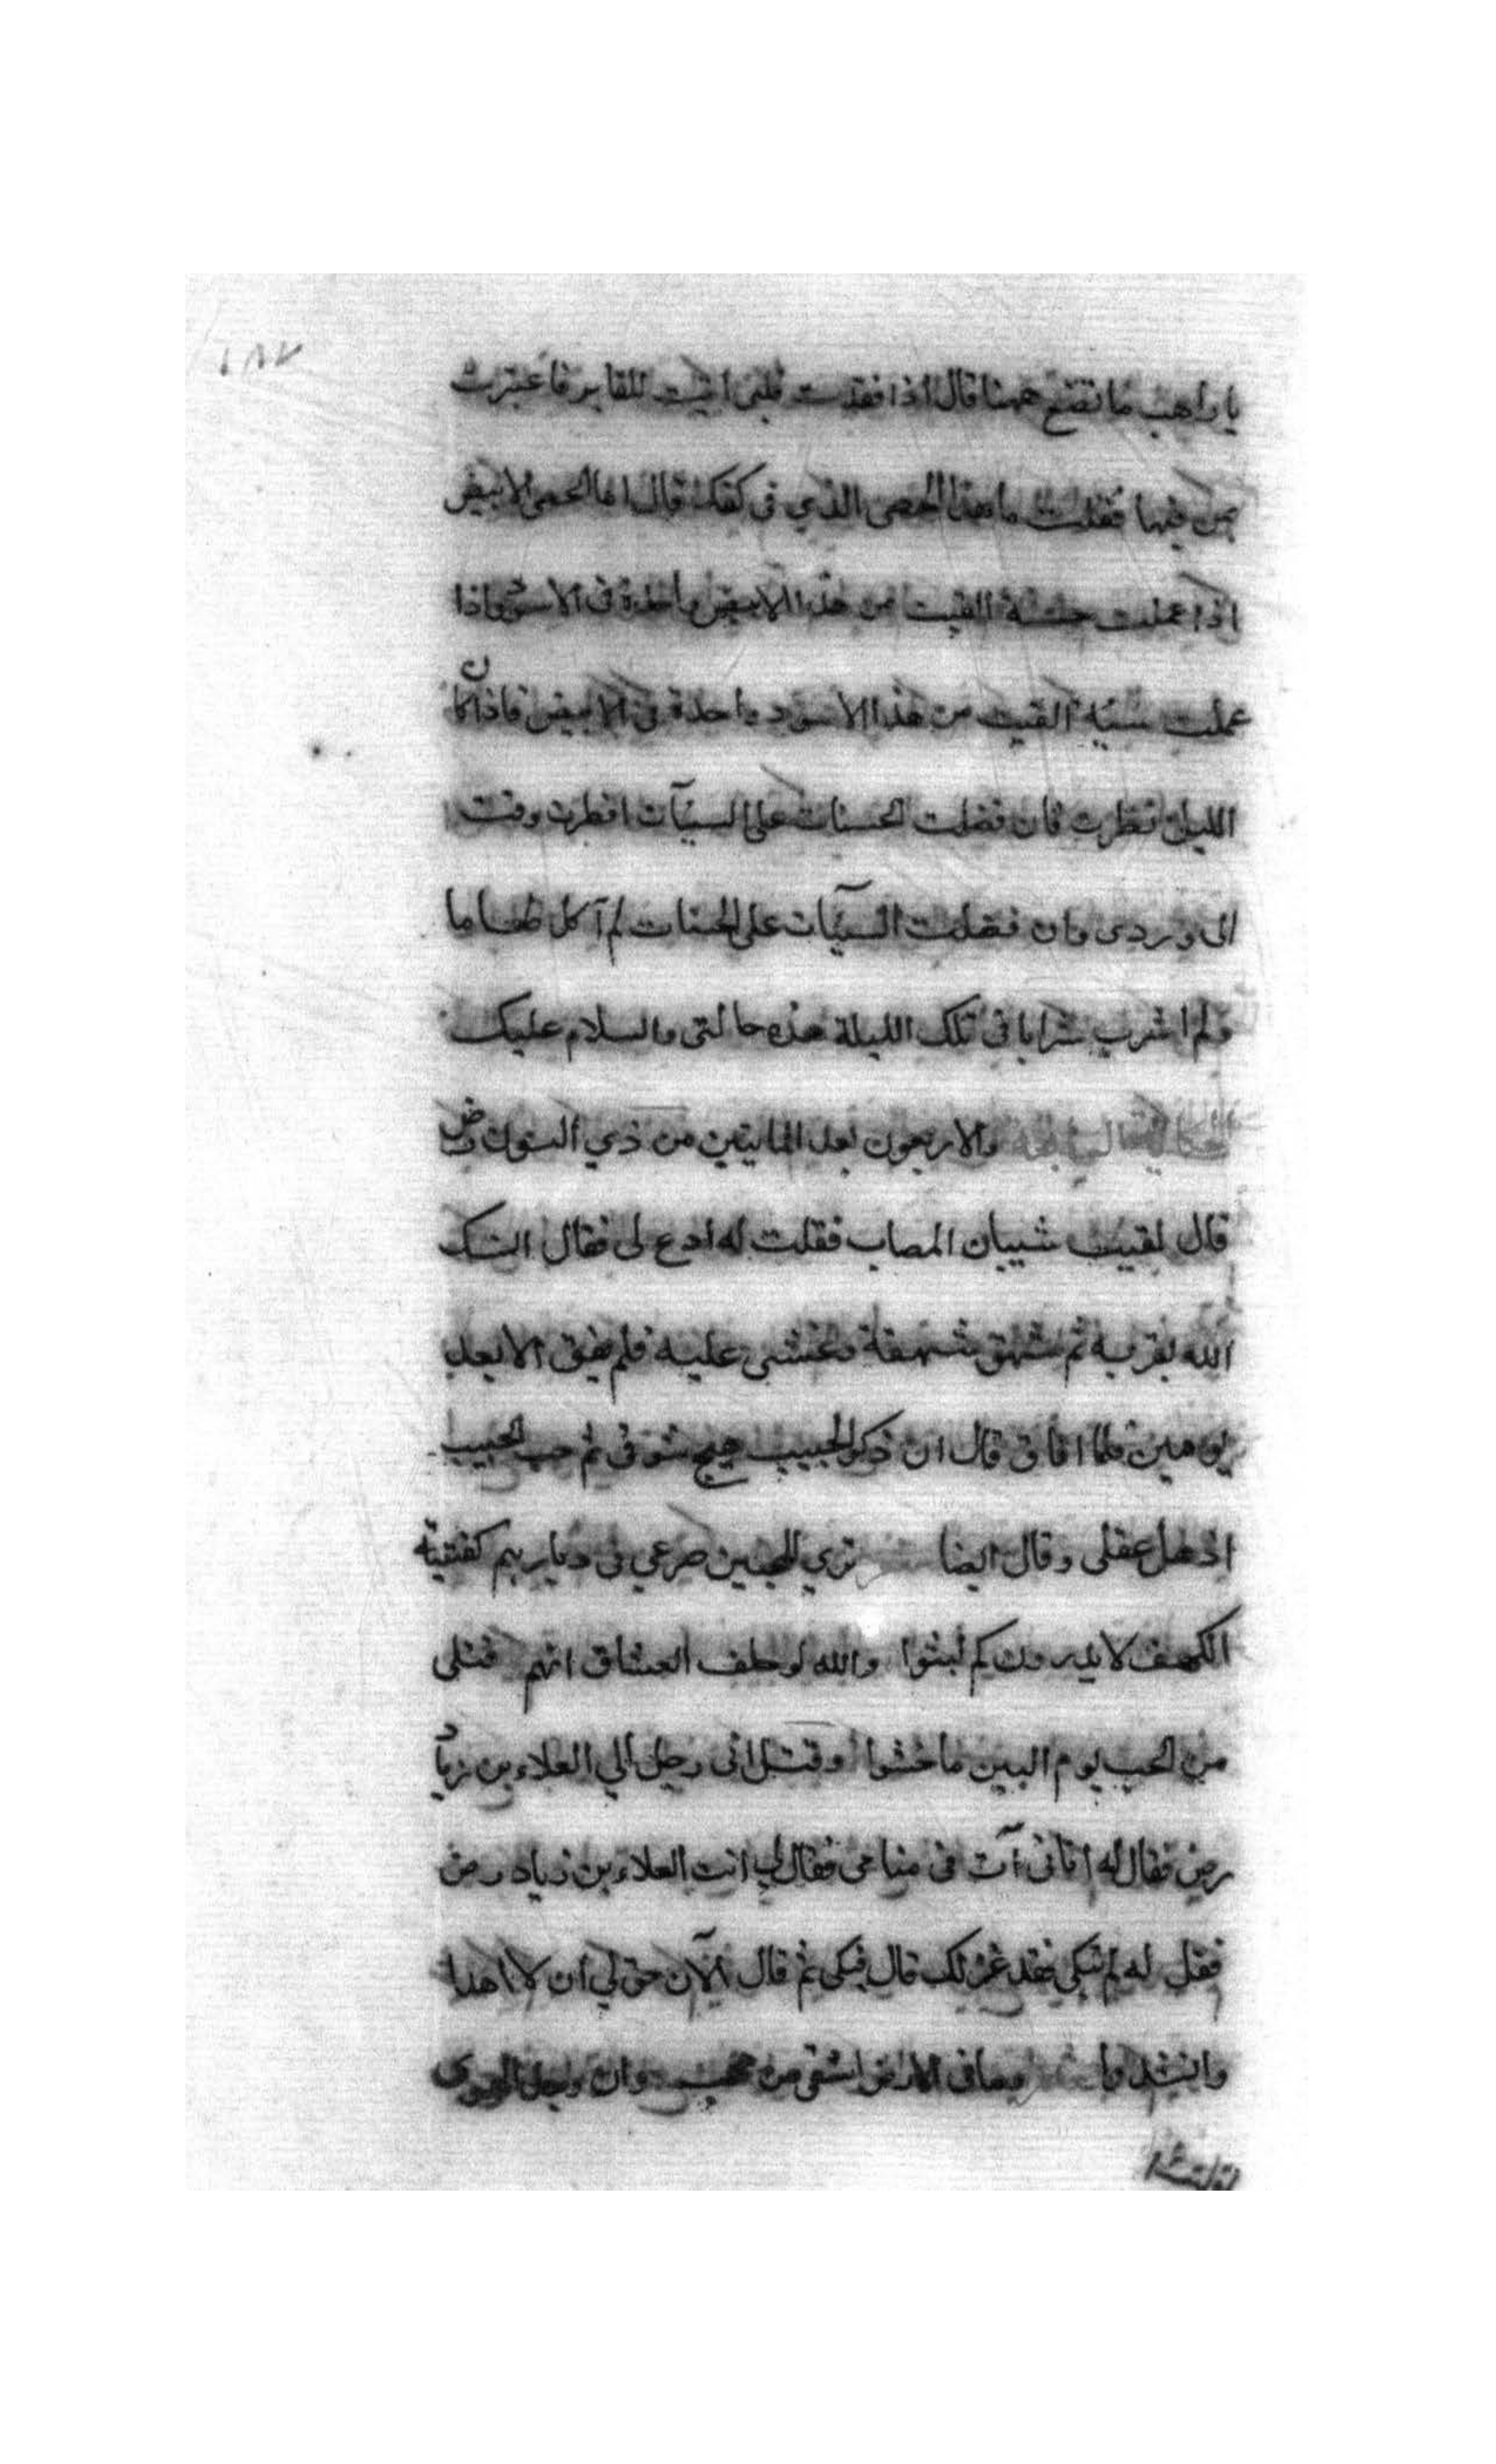 ١٨٧
يا راهب ما تصنع ههنا قال اذا فقدت قلبى اتيت المقابر فاعتبرت
بمن فيها فقلت ما هذا الحصى الذي فى كفك قال اما الحصى الابيض
اذا عملت حسنة القيت من هذا الابيض واحدة فى الاسود واذا
عملت سيئه القيت من هذا الاسود واحدة فى الابيض فاذا كان
الليل نظرت فان فضلت الحسنات على السيآت افطرت وقمت
الى وردى وان فضلت السيآت على الحسنات لم آكل طعاما
ولم اشرب شرابا فى تلك الليلة هذه حالتى والسلام عليك
الحكاية السابعة والاربعون بعد المايتين من ذي النون رض
قال لقيت شيبان المصاب فقلت له ادع لى فقال انسك
الله بقربه ثم شهق شهقة وغشى عليه فلم يفق الا بعد
يومين فلما افاق قال ان ذكر الحبيب هيج شوقى ثم حب الحبيب
اذهل عقلى وقال ايضا ترى المحبين صرعي فى ديارهم كفتية
الكهف لا يدرون كم لبثوا والله لو حلف العشاق انهم قتلى
من الحب يوم البين ما حنثوا وقيل اتى رجل الي العلاء بن زياد
رض فقال له اتانى آت فى منامى فقال لي ائت العلاء بن زياد رض
فقل له لم تبكى فقد غفر لك قال فبكى ثم قال الآن حق لي ان لا اهدا
وانشدوا وما فى الارض اشقى من محب وان وجد الهوى